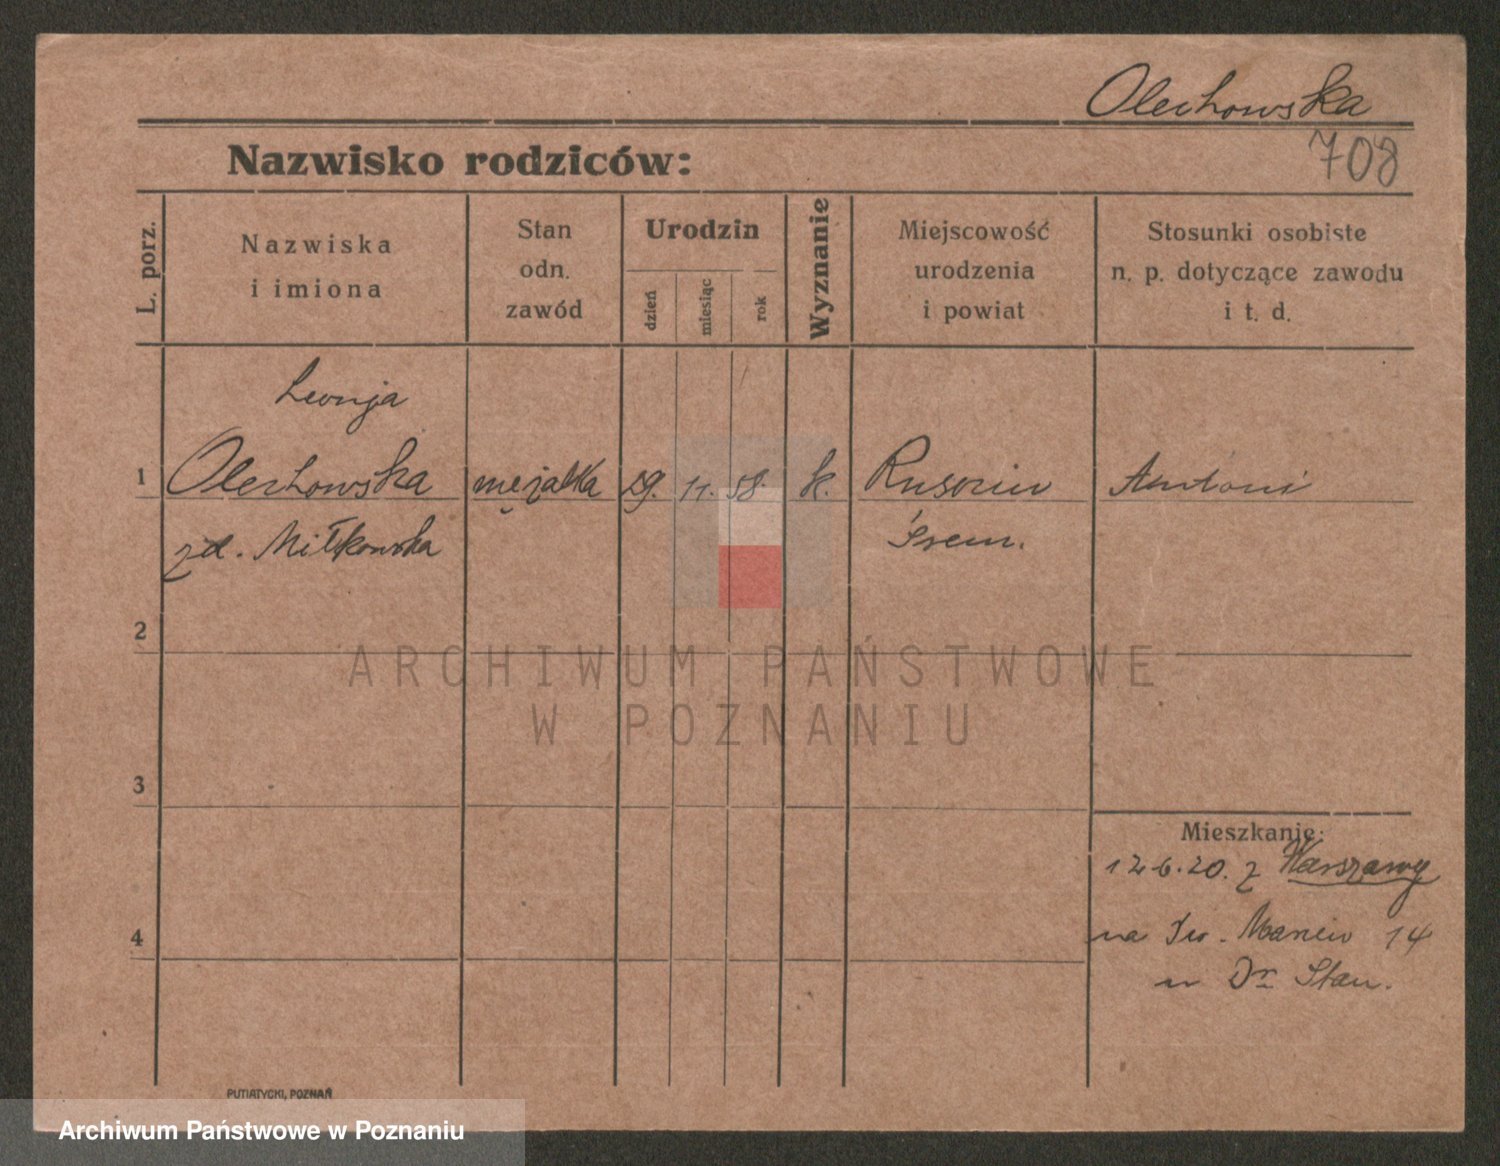 Olechowska
708
Nazwisko rodziców:
L. porz.
Nazwiska
i imiona
Stan
odn.
zawód
Urodzin
dzień
miesiąc
rok
Wyznanie
Miejscowość
urodzenia
i powiat
Stosunki osobiste
n. p. dotyczące zawodu
i t. d.
Leonja
1 Olechowska mężatka 29. 11. 58 k. Rusocin Antoni
zd. Miłkowska Śrem.
2
ARCHIWUM PAŃSTWOWE
W POZNANIU
3
Mieszkanie:
12.6.20. z Warszawy
4
na Św. Marcin 14
u Dr Stan.
PUTIATYCKI, POZNAŃ
Archiwum Państwowe w Poznaniu